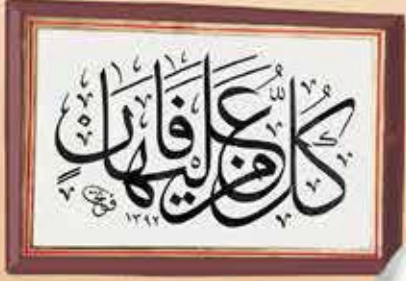 كُلُّ مَنْ عَلَيْهَا فَانٍ
١٣٩٢